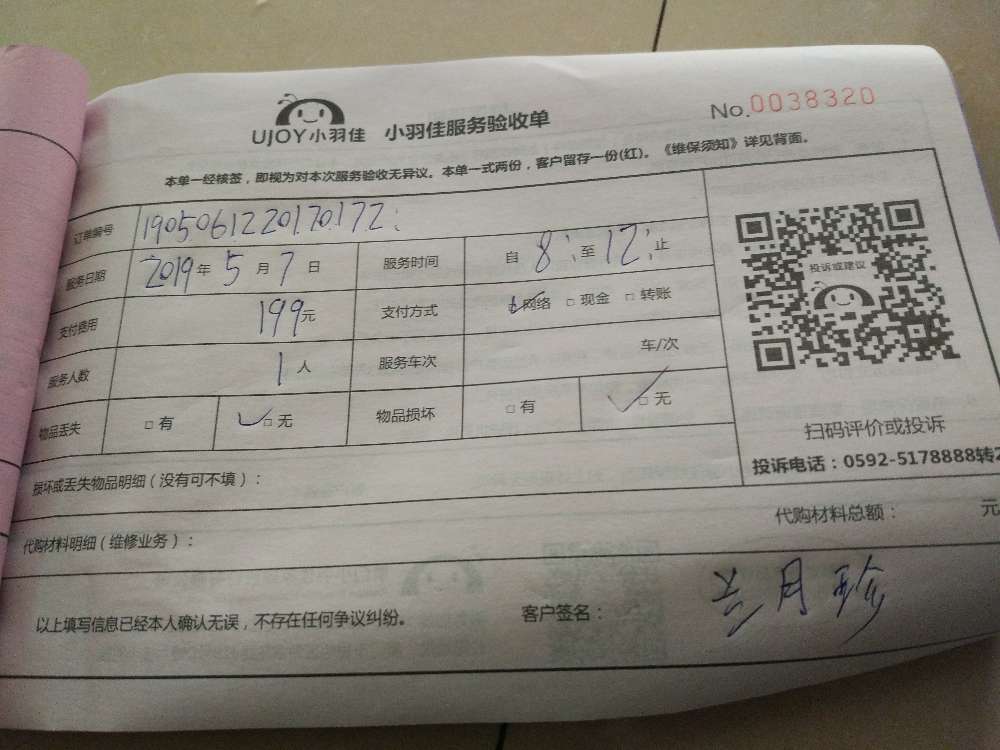 UJOY小羽佳 小羽佳服务验收单 No.0038320
本单一经核签，即视为对本次服务验收无异议。本单一式两份，客户留存一份(红)。《维保须知》详见背面。
订单编号 190506122017 0172
服务日期 2019年5月7日 服务时间 自8:至12:止
支付费用 199元 支付方式 ☑网络 □现金 □转账
服务人数 1人 服务车次 车/次
物品丢失 □有 ☑无 物品损坏 □有 ☑无
投诉或建议
扫码评价或投诉
投诉电话：0592-5178888转2
损坏或丢失物品明细（没有可不填）：
代购材料明细（维修业务）： 代购材料总额： 元
以上填写信息已经本人确认无误，不存在任何争议纠纷。 客户签名： 兰月珍